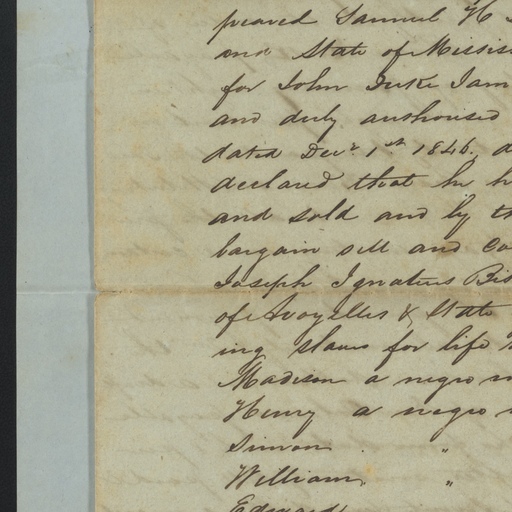 peared Samuel H
and State of Missis
for John Duke Jam
and duly authorised
dated Decr. 1st 1846, d
declared that he h
and sold and by th
bargain sell and Co
Joseph Ignatius Bis
of Avoyelles & State
ing slaves for life
Madison a negro m
Henry a negro
Simon "
William "
Edward